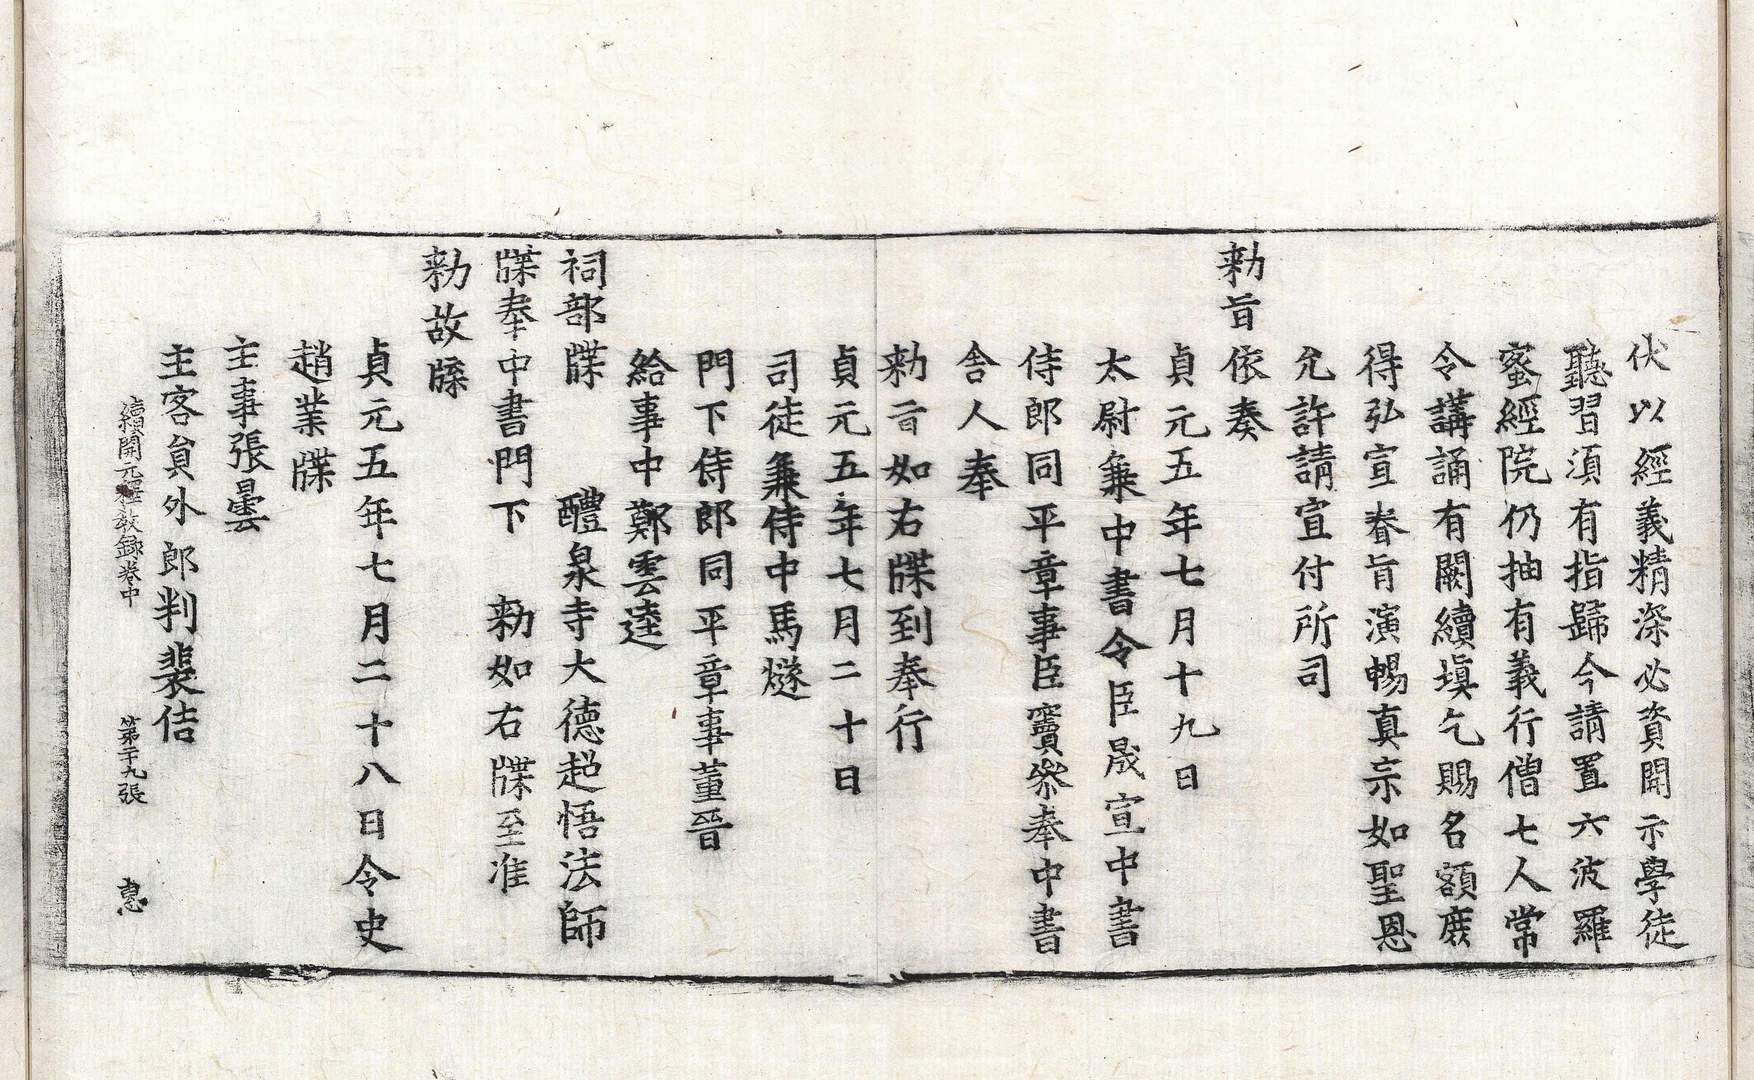 伏以經義精深必資開示學徒
聽習須有指歸今請置六波羅
蜜經院仍抽有義行僧七人常
令講誦有闕續塡乞賜名額庶
得弘宣眷旨演暢真宗如聖恩
允許請宣付所司
勑旨依奏
貞元五年七月十九日
太尉兼中書令臣晟宣中書
侍郎同平章事臣竇參奉中書
舍人奉
勑旨如右牒到奉行
貞元五年七月二十日
司徒兼侍中馬燧
門下侍郎同平章事董晉
給事中鄭雲逵
祠部牒 醴泉寺大德超悟法師
牒奉中書門下 勑如右牒至准
勑故牒
貞元五年七月二十八日令史
趙業牒
主事張曇
主客員外郎判裴佶
續開元釋教錄卷中 第二十九張 惠